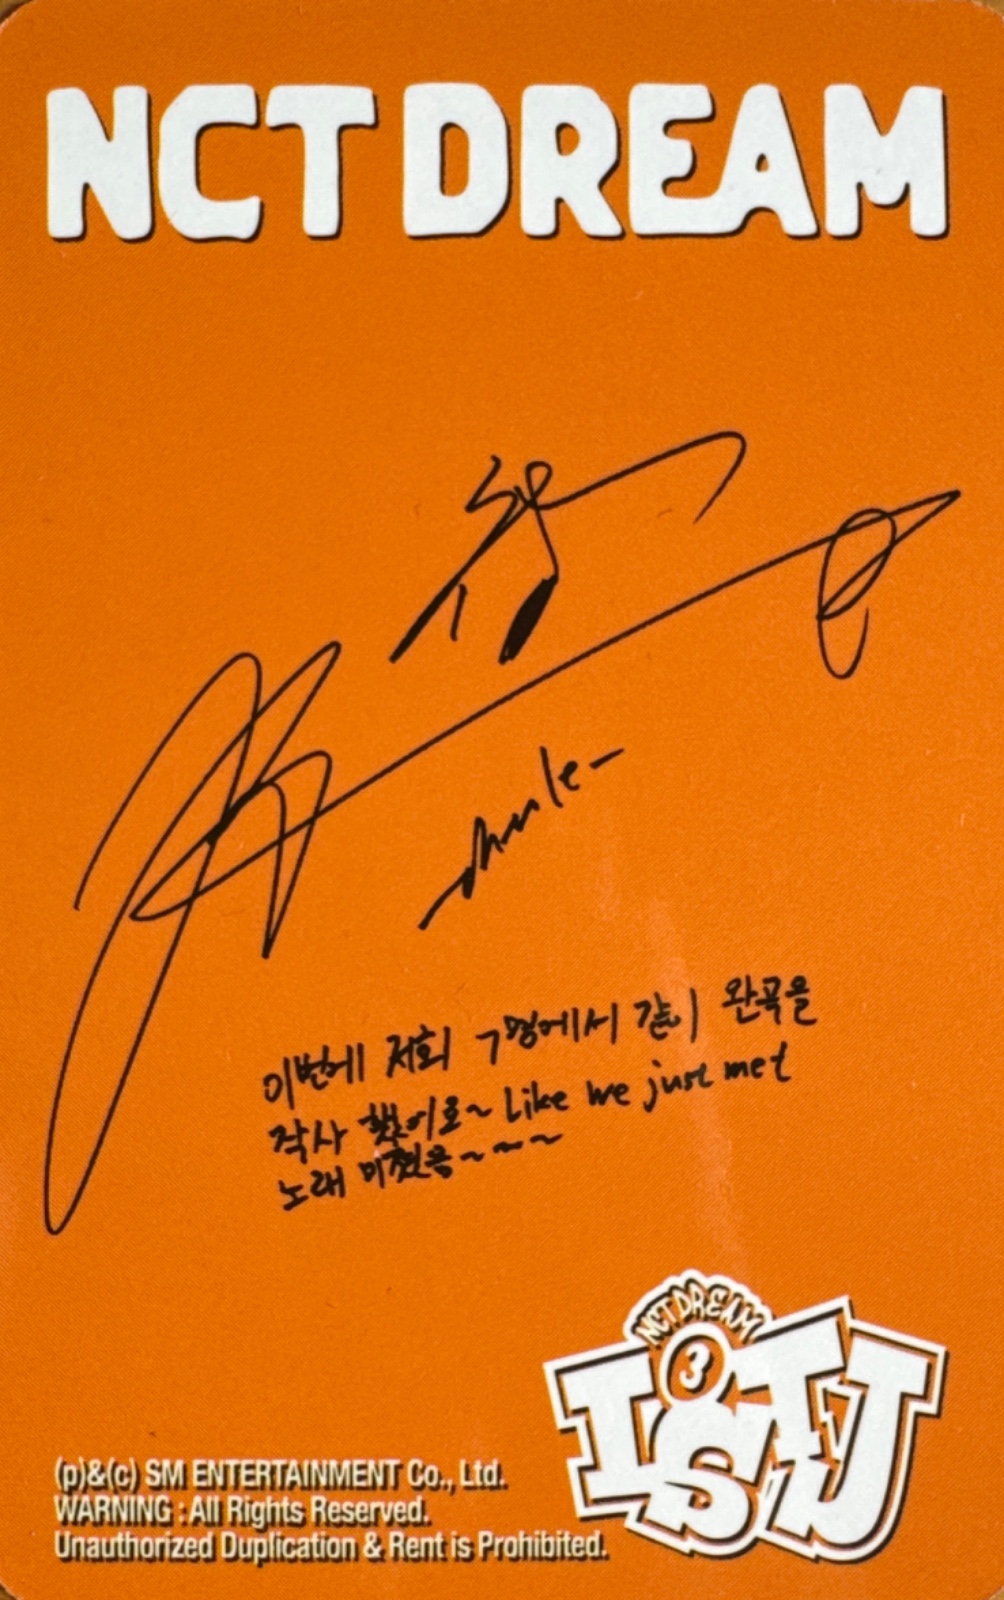 NCT DREAM
이번에 저희 7명에서 같이 완곡을
작사 했어요~ Like We just met
노래 미쳤음~~~
NCT DREAM
3
ISTJ
(p)&(c) SM ENTERTAINMENT Co., Ltd.
WARNING : All Rights Reserved.
Unauthorized Duplication & Rent is Prohibited.